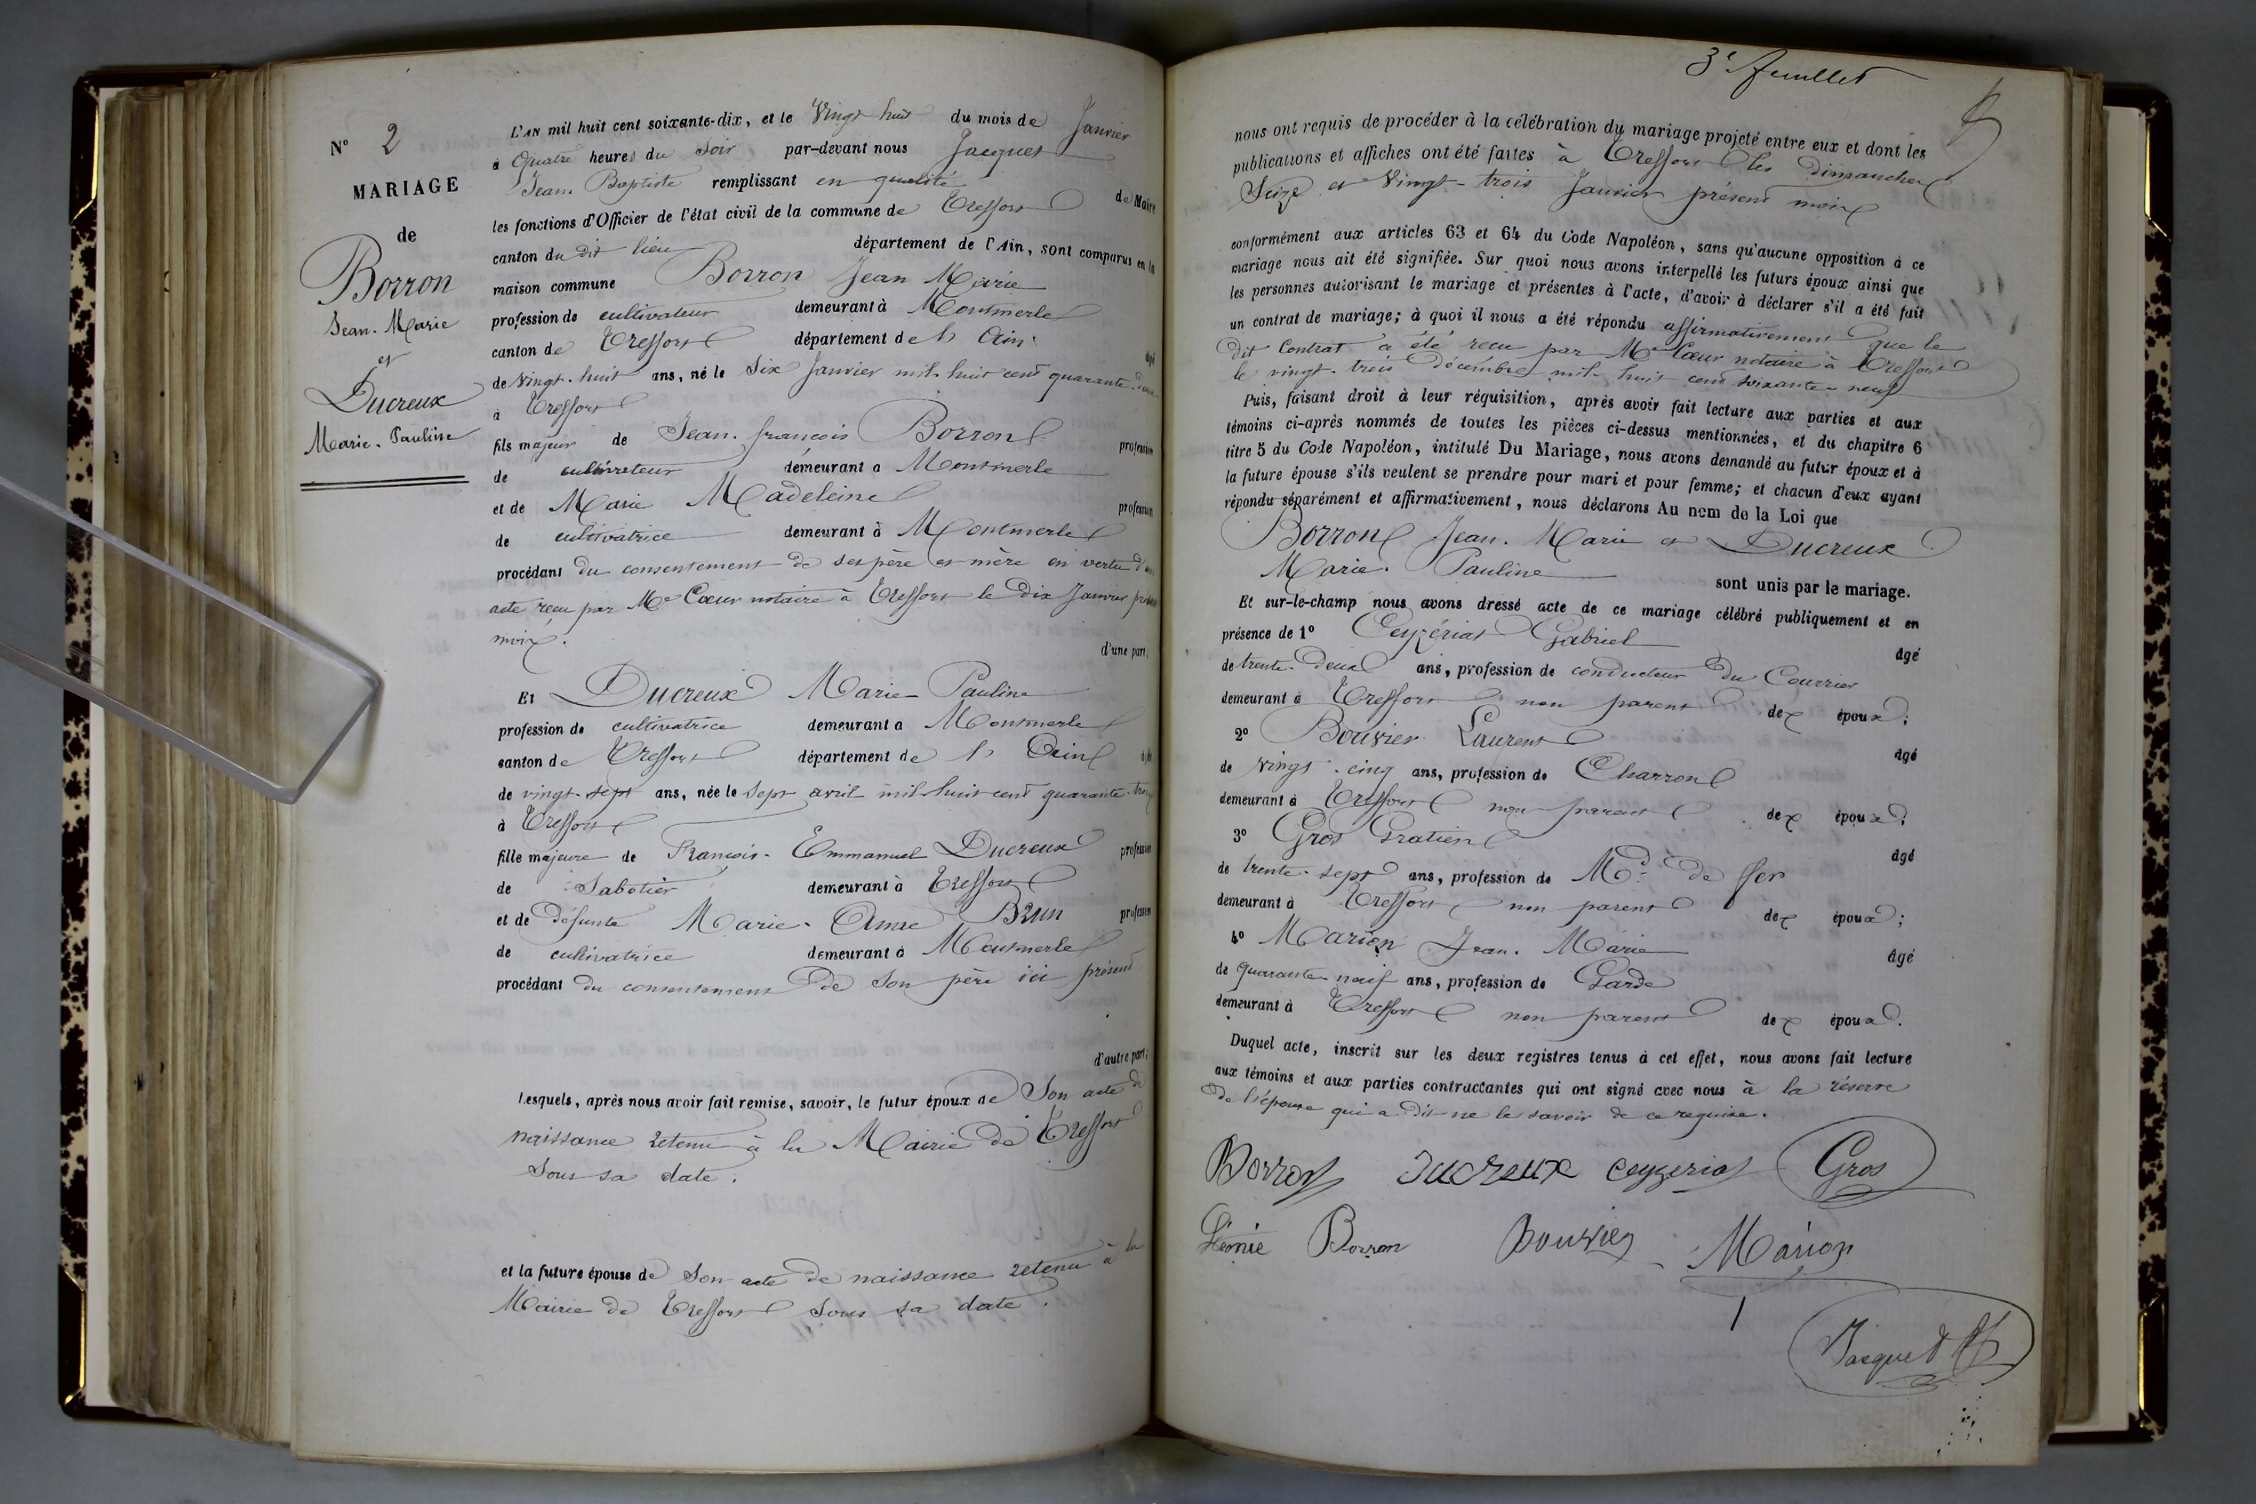 N° 2
MARIAGE
de
Borron
Jean-Marie
et
Ducreux
Marie-Pauline
L'AN mil huit cent soixante-dix, et le Vingt huit du mois de Janvier
à Quatre heures du Soir par-devant nous Jacquet
Jean-Baptiste remplissant en qualité de Maire
les fonctions d'Officier de l'état civil de la commune de Treffort
canton du dit lieu département de l'Ain, sont comparus en la
maison commune Borron Jean Marie
profession de cultivateur demeurant à Montmerle
canton de Treffort département de l'Ain âgé
de vingt-huit ans, né le Six Janvier mil-huit cent quarante-deux
à Treffort
fils majeur de Jean-françois Borron profession
de cultivateur demeurant à Montmerle
et de Marie Madeleine profession
de cultivatrice demeurant à Montmerle
procédant du consentement de ses père et mère en vertu d'un
acte reçu par Me Cœur notaire à Treffort le dix Janvier présent
mois.
d'une part,
Et Ducreux Marie-Pauline
profession de cultivatrice demeurant à Montmerle
canton de Treffort département de l'Ain âgée
de vingt-sept ans, née le Sept avril mil-huit cent quarante-trois
à Treffort
fille majeure de François-Emmanuel Ducreux profession
de Sabotier demeurant à Treffort
et de défunte Marie-Anne Brun profession
de cultivatrice demeurant à Montmerle
procédant du consentement de Son père ici présent
d'autre part;
Lesquels, après nous avoir fait remise, savoir, le futur époux de Son acte de
naissance retenu à la Mairie de Treffort
Sous sa date.
et la future épouse de Son acte de naissance retenu à la
Mairie de Treffort Sous sa date.
3e feuillet
nous ont requis de procéder à la célébration du mariage projeté entre eux et dont les
publications et affiches ont été faites à Treffort les dimanches
Seize et Vingt-trois Janvier présent mois
conformément aux articles 63 et 64 du Code Napoléon, sans qu'aucune opposition à ce
mariage nous ait été signifiée. Sur quoi nous avons interpellé les futurs époux ainsi que
les personnes autorisant le mariage et présentes à l'acte, d'avoir à déclarer s'il a été fait
un contrat de mariage; à quoi il nous a été répondu affirmativement que le
dit Contrat a été reçu par Me Cœur notaire à Treffort
le vingt-trois décembre mil-huit cent soixante-neuf
Puis, faisant droit à leur réquisition, après avoir fait lecture aux parties et aux
témoins ci-après nommés de toutes les pièces ci-dessus mentionnées, et du chapitre 6
titre 5 du Code Napoléon, intitulé Du Mariage, nous avons demandé au futur époux et à
la future épouse s'ils veulent se prendre pour mari et pour femme; et chacun d'eux ayant
répondu séparément et affirmativement, nous déclarons Au nom de la Loi que
Borron Jean-Marie et Ducreux
Marie-Pauline sont unis par le mariage.
Et sur-le-champ nous avons dressé acte de ce mariage célébré publiquement et en
présence de 1° Ceyzériat Gabriel âgé
de trente-deux ans, profession de conducteur du Courrier
demeurant à Treffort non parent des époux;
2° Bouvier Laurent âgé
de vingt-cinq ans, profession de Charron
demeurant à Treffort non parent des époux;
3° Gros Gratien âgé
de trente-sept ans, profession de Md de fer
demeurant à Treffort non parent des époux;
4° Marion Jean-Marie âgé
de quarante-neuf ans, profession de Garde
demeurant à Treffort non parent des époux.
Duquel acte, inscrit sur les deux registres tenus à cet effet, nous avons fait lecture
aux témoins et aux parties contractantes qui ont signé avec nous à la réserve
de l'épouse qui a dit ne le savoir de ce requise.
Borron Ducreux ceyzeriat Gros
Léonie Borron Bouvier Marion
Jacquet